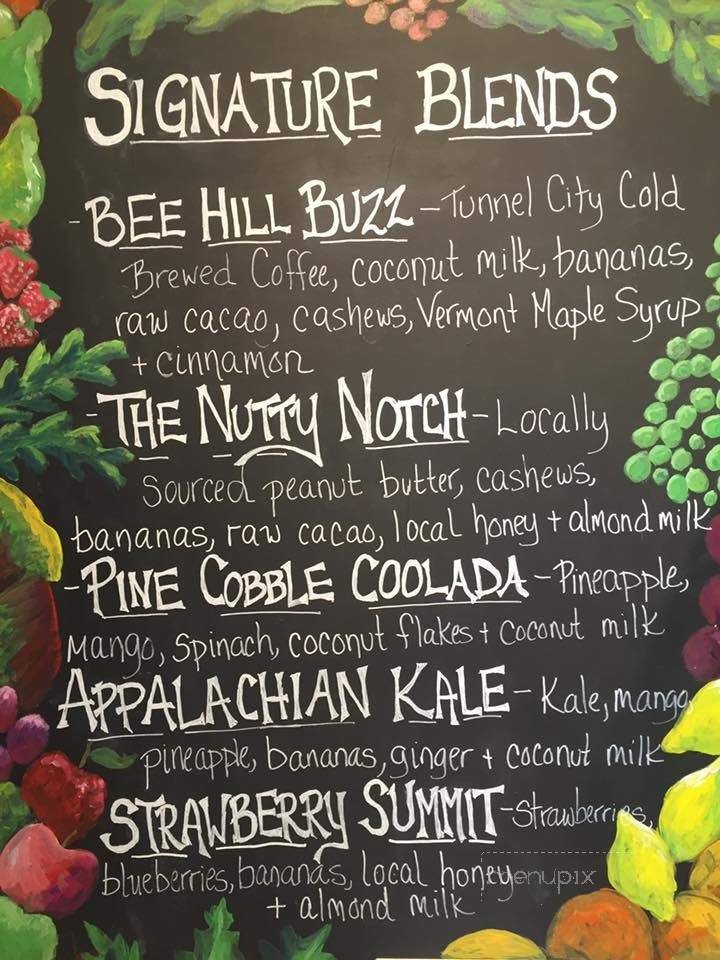 SIGNATURE BLENDS
- BEE HILL BUZZ - Tunnel City Cold
Brewed Coffee, coconut milk, bananas,
raw cacao, cashews, Vermont Maple Syrup
+ cinnamon
- THE NUTTY NOTCH - Locally
Sourced peanut butter, cashews,
bananas, raw cacao, local honey + almond milk
- PINE COBBLE COOLADA - Pineapple,
Mango, Spinach, coconut flakes + coconut milk
APPALACHIAN KALE - Kale, mango,
pineapple, bananas, ginger + coconut milk
STRAWBERRY SUMMIT - Strawberries,
blueberries, bananas, local honey
+ almond milk
menupix